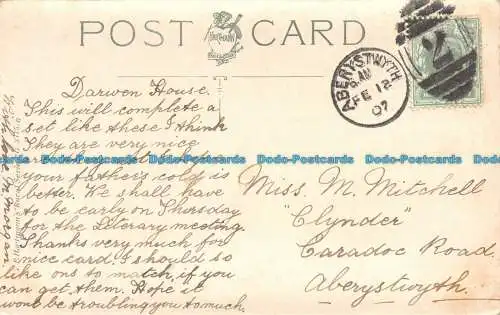 POST CARD
ABERYSTWYTH
6. AM
FE 12
07
2
Darwen House.
This will complete a
set like these I think
They are very nice
your father's cold is
better. We shall have
to be early on Thursday
for the Literary meeting.
Thanks very much for
nice card. I should so
like ons to match, if you
can get them. Hope it
wont be troubling you to much.
Miss. M. Mitchell
"Clynder"
Caradoc Road.
Aberystwyth.
Dodo-Postcards Dodo-Postcards Dodo-Postcards Dodo-Postcards Dodo-Postcards